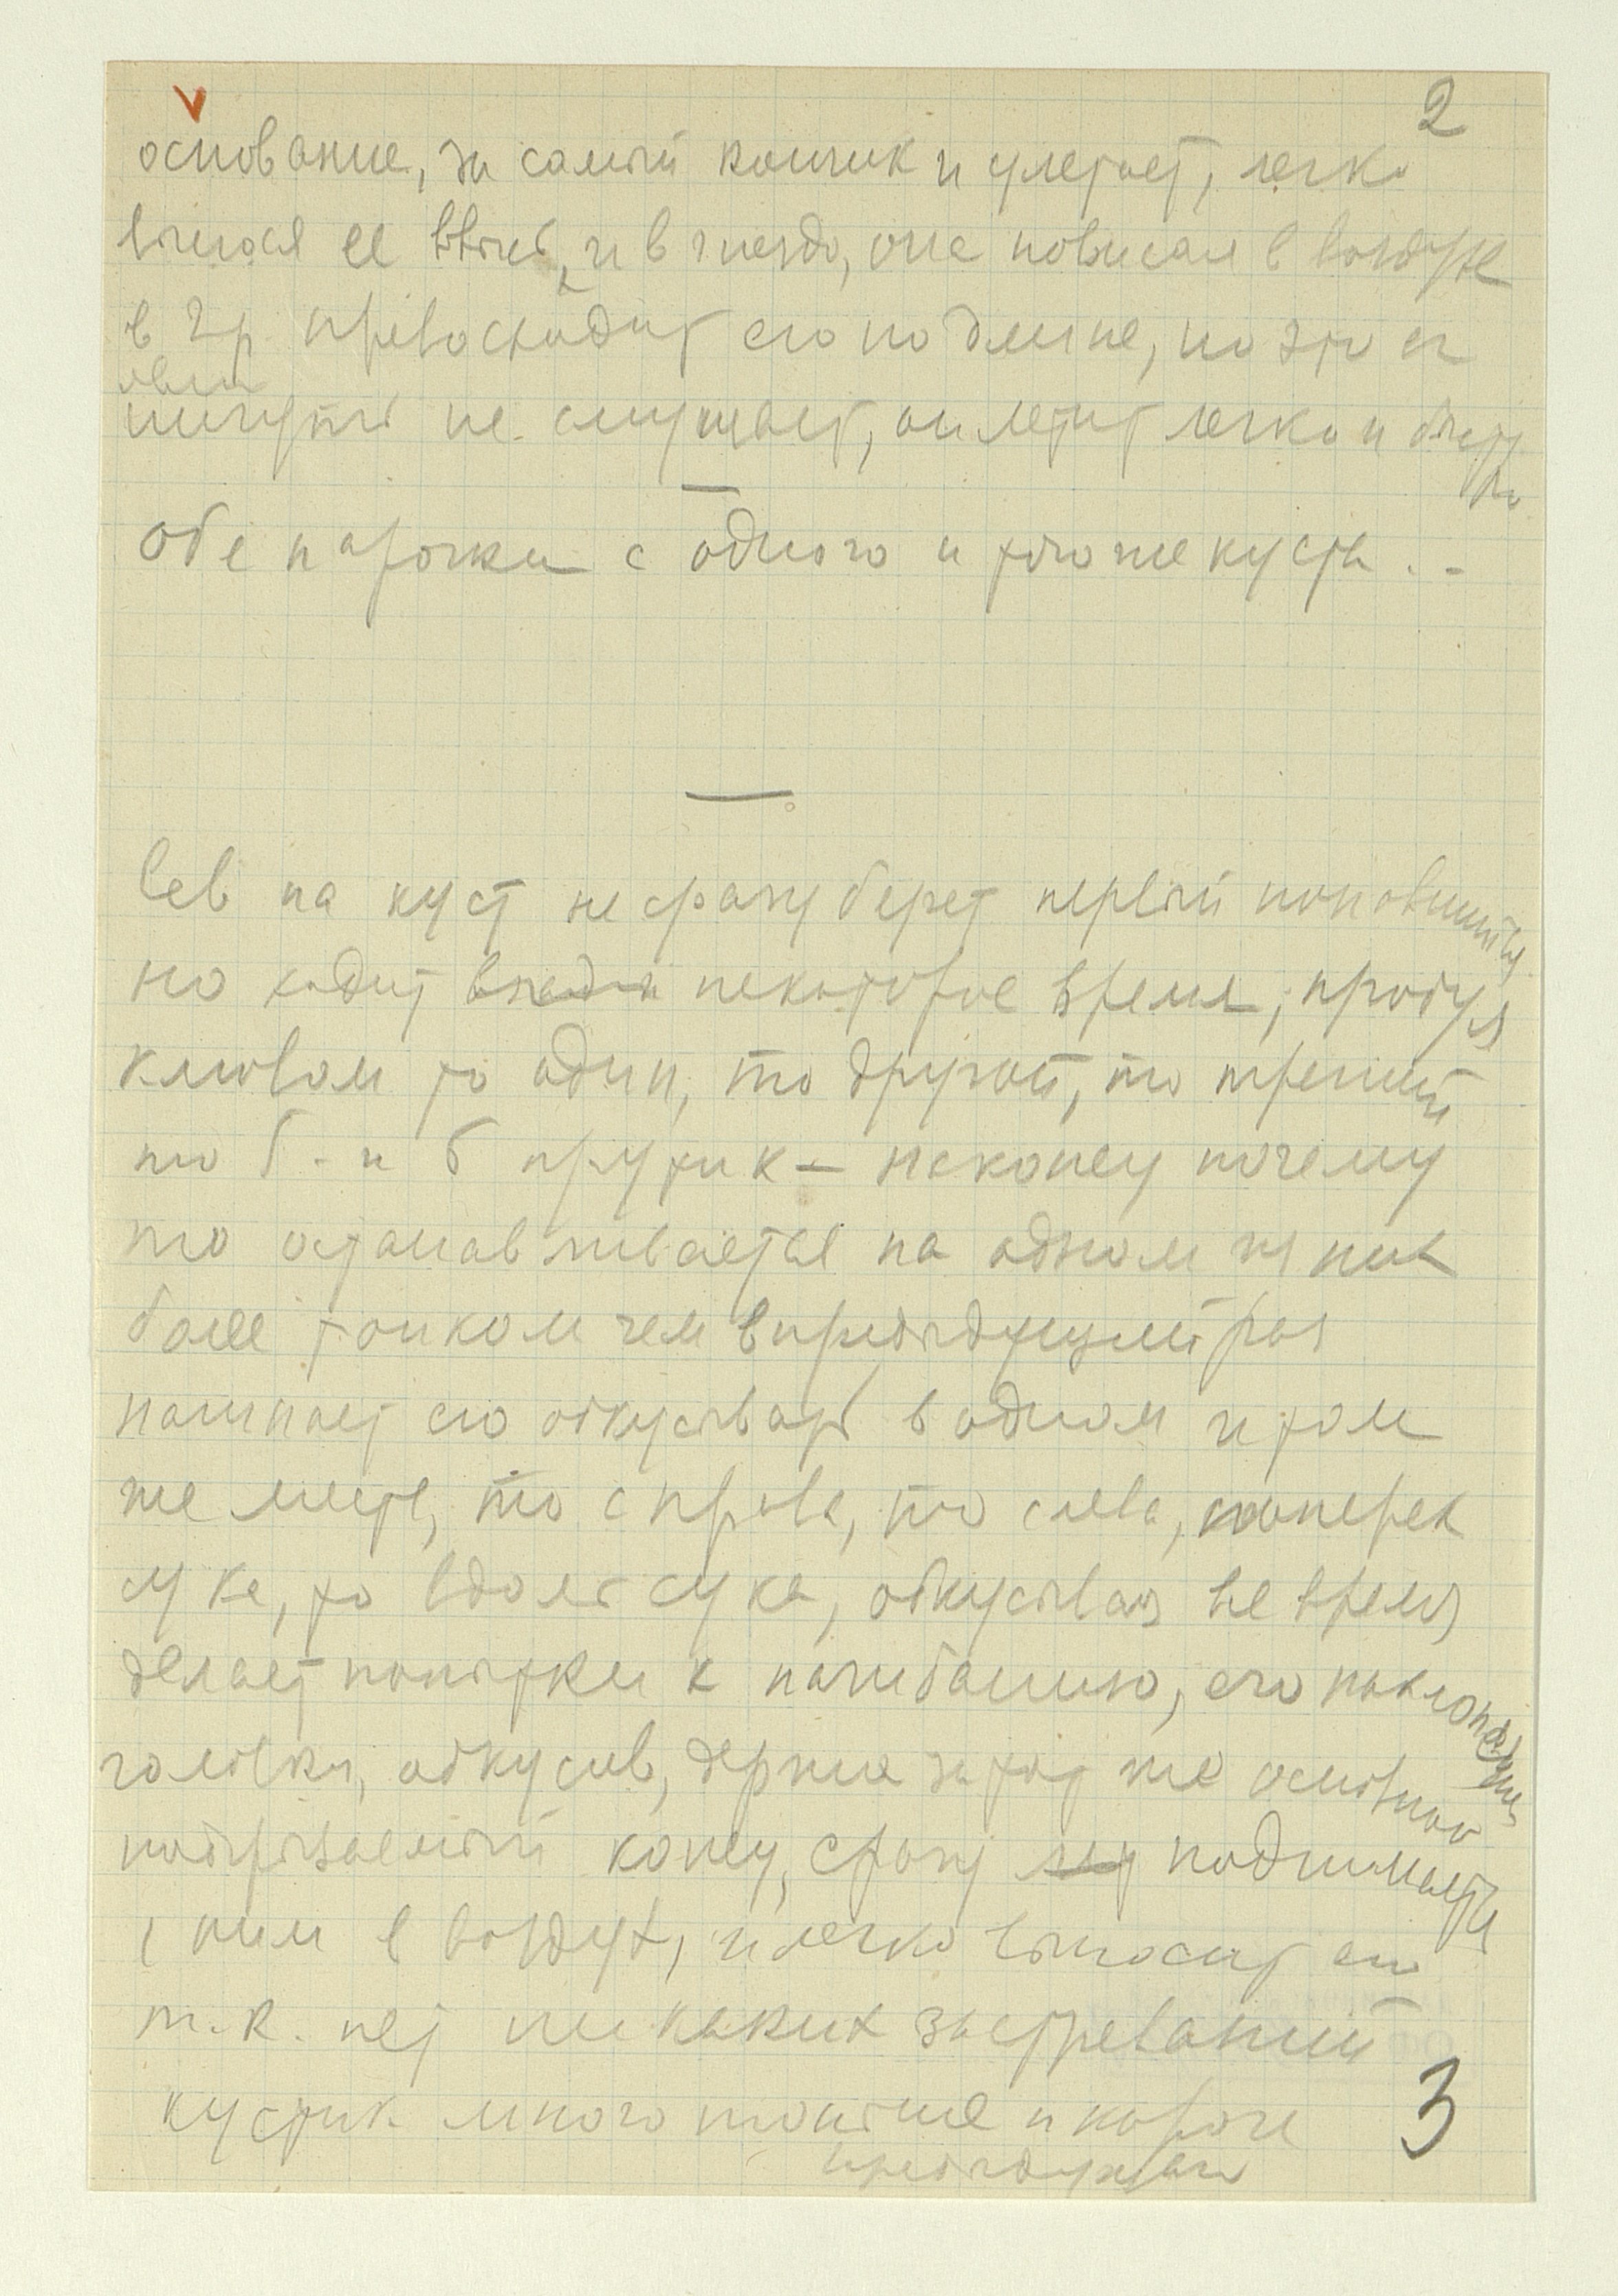 2
основание, за самый кончик и улетает, легко
вынося ее ввысь, и в гнездо, она повисая в воздухе
в 2 р. превосходит его по длине, но это его
ничуть не смущает, он летит легко и быстро
Обе парочки с одного и того же куста . -
Сев на куст не сразу берет первый попавшийся
но ходит некоторое время, пробуя
клювом то один, то другой, то третий
то б - и б прутик — наконец почему
то останавливается на одном из них
более тонком чем в предыдущий раз
начинает его откусывать в одном и том
же месте, то справа, то слева, поперек
сука, то вдоль сука, откусывая все время
делает попытки к нагибанию, его наклонению
головки, откусив, держа за тот же основной
надгрызаемый конец, сразу подымается
с ним в воздух, и легко выносит его
т.к. нет никаких застреваний
кустик много тоньше и короче
предыдущего
3